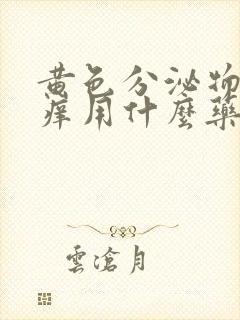 黄色分泌物
痒用什麼藥
雲滄月